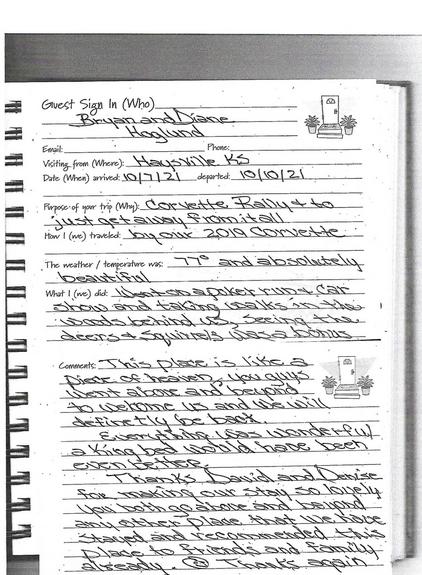 Guest Sign In (Who)
Bryan and Diane
Hoglund
Email: Phone:
Visiting from (Where): Haysville KS
Date (When) arrived: 10/7/21 departed: 10/10/21
Purpose of your trip (Why): Corvette Rally & to
just get away from it all
How I (we) traveled: by our 2019 Corvette
The weather / temperature was: 77° and absolutely
beautiful
What I (we) did: Went on a poker run & car
show and taking walks in the
woods behind us, seeing the
deers & squirrels was a bonus
Comments: This place is like a
piece of heaven, you guys
went above and beyond
to welcome us and we will
definetly be back
Everything was wonderful
a King bed would have been
even better.
Thanks David and Denise
for making our stay so lovely
you both go above and beyond
any other place that we have
stayed and recommended this
place to friends and family
already. ☺ Thanks again